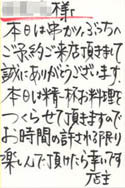 様
本日は串かつ ぶらちへ
ご予約ご来店頂きまして
誠にありがとうございます。
本日は精一杯お料理を
つくらせて頂きますので
お時間の許される限り
楽しんで頂けたら幸いです
店主